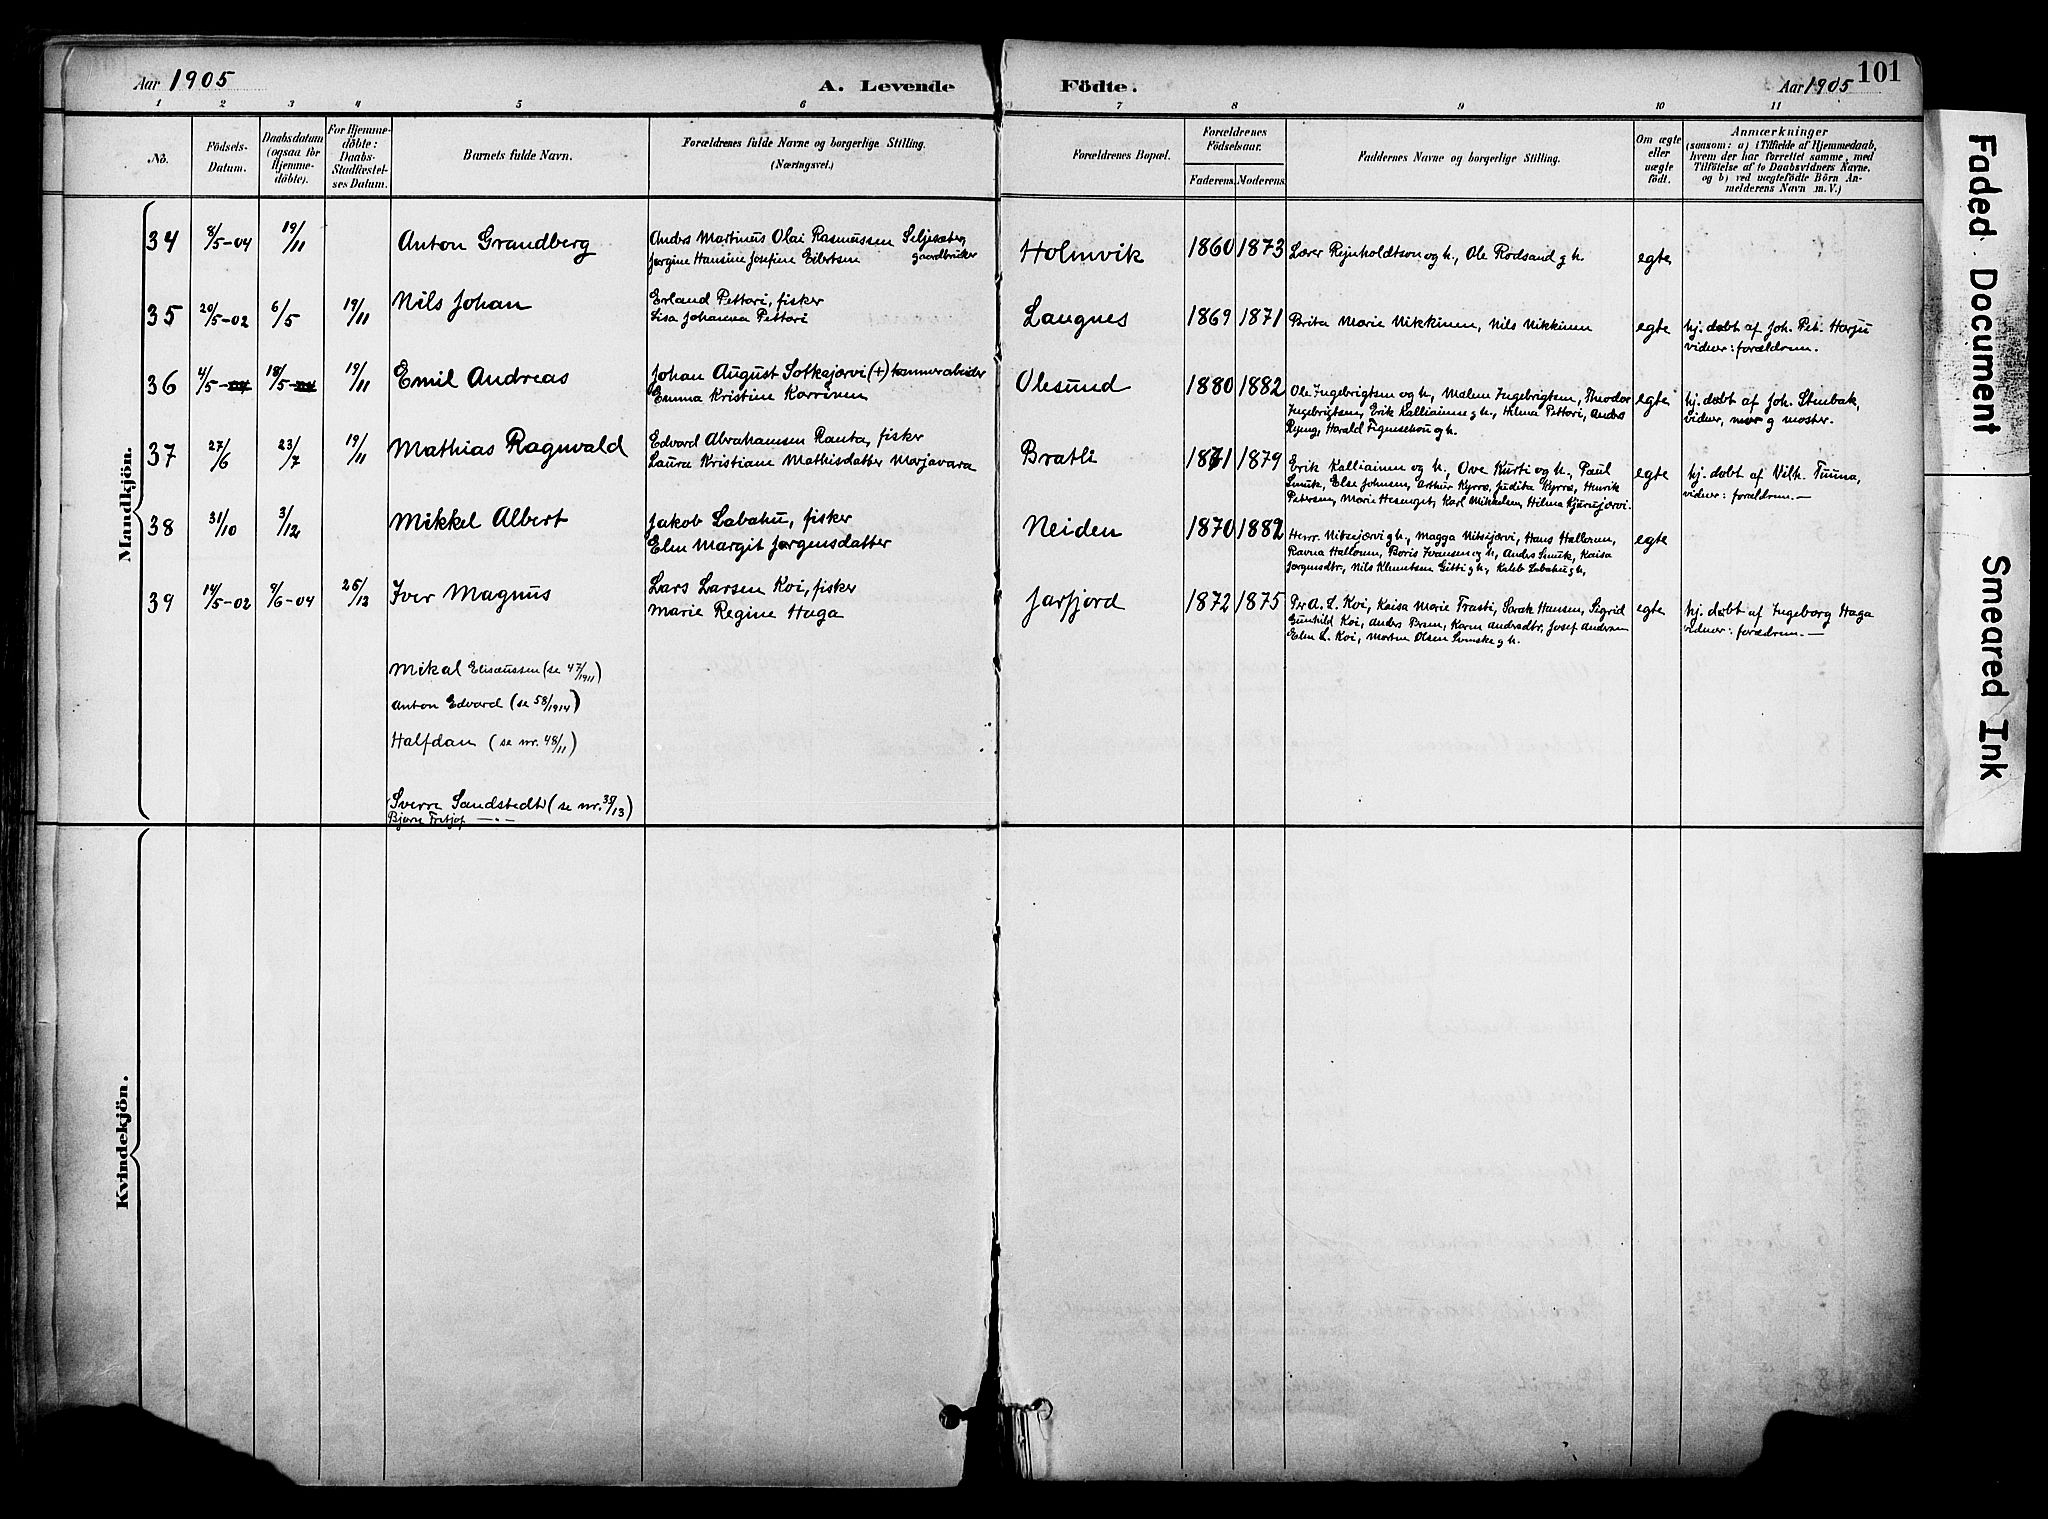 Aar 1905
A. Levende Födte.
Aar 1905
101
1 2 3 4 5 6 7 8 9 10 11
No.
Födsels-
Datum.
Daabsdatum
(ogsaa for
Hjemme-
döbte).
For Hjemme-
döbte:
Daabs-
Stadfæstel-
ses Datum.
Barnets fulde Navn.
Forældrenes fulde Navne og borgerlige Stilling.
(Næringsvei.)
Forældrenes Bopæl.
Forældrenes
Födselsaar.
Faderens. Moderens.
Faddernes Navne og borgerlige Stilling.
Om ægte
eller
uægte
födt.
Anmærkninger
(saasom: a) i Tilfælde af Hjemmedaab,
hvem der har forrettet samme, med
Tilföielse af to Daabsvidners Navne,
og b) ved uægtefödte Börn An-
melderens Navn m. V.)
Mandkjön.
34 8/5-04 19/11 Anton Grandberg
Anders Martinus Olai Rasmussen Seljesæter
Jørgine Hansine Josefine Eibertsen gaardbruker
Holmvik 1860 1873
Lærer Rejnholdtson og h., Ole Rodsand og h.
egte
35 20/5-02 6/5 19/11 Nils Johan
Erland Pettari, fisker
Lisa Johanna Pettari
Langnes 1869 1871
Brita Marie Nikkinen, Nils Nikkinen
egte
hj. døbt af Joh. Pet. Harju
vidner: forældrene.
36 4/5 18/5 19/11 Emil Andreas
Johan August Sotkajærvi (+) tømmerarbeider
Emma Kristine Karrinen
Olesund 1880 1882
Ole Ingebrigtsen og h., Malene Ingebrigtsen, Theodor
Ingebrigtsen, Erik Kalliainen og h., Hilma Pettari, Anders
Ryeng, Harald Figenschou og h.
egte
hj. døbt af Joh. Stenbak,
vidner, mor og moster.
37 27/6 23/7 19/11 Mathias Ragnvald
Edvard Abrahamsen Ranta, fisker
Laura Kristiane Mathisdatter Marjavara
Bratli 1871 1879
Erik Kalliainen og h., Ove Kurti og h., Paul
Smuk, Else Johnsen, Arthur Kyrrø, Judita Kyrrø, Henrik
Petersen, Marie Hesenget, Karl Mikkelsen, Hilma Kjærujærvi.
egte
hj. døbt af Vilh. Tuuna,
vidner: forældrene.—
38 31/10 3/12 Mikkel Albert
Jakob Labahu, fisker
Elen Margit Jørgensdatter
Neiden 1870 1882
Henr. Nitsijærvi og h., Magga Nitsijærvi, Hans Halloren,
Ravna Halloren, Boris Ivansen og h., Anders Smuk, Kaisa
Jørgensdtr, Nils Klemetsen Gitti og h., Kaleb Labahu og h.
egte
39 14/5-02 9/6-04 26/12 Iver Magnus
Lars Larsen Koi, fisker
Marie Regine Haga
Jarfjord 1872 1875
Per A. L. Koi, Kaisa Marie Trasti, Sarak Hansen, Sigrid
Gunhild Koi, Anders Brun, Karen Andersdtr, Josef Andersen
Elen L. Koi, Morten Olsen Svenske og h.
egte
hj. døbt af Ingeborg Haga
vidner: forældrene.—
Mikal Elisæussen (se 47/1911)
Anton Edvard (se 58/1914)
Halfdan (se nr. 48/11)
Sverre Sandstedt (se nr. 35/13)
Bjarne Fritjof —"—
Kvindekjön.
Faded Document
Smeared Ink